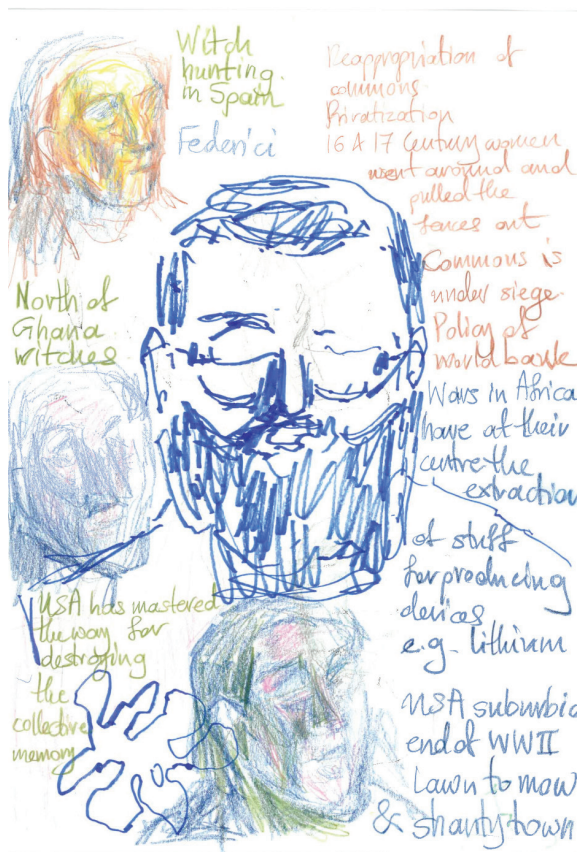 Witch
hunting
in Spain
Federici
Reappropriation of
commons
Privatization
16 A 17 Century women
went around and
pulled the
fences out
Commons is
under siege
Policy of
world bank
North of
Ghana
witches
Wars in Africa
have at their
centre the
extraction
of stuff
for producing
devices
e.g. lithium
USA has mastered
the way for
destroying
the
collective
memory
USA suburbia
end of WWII
Lawn to mow
& shantytown